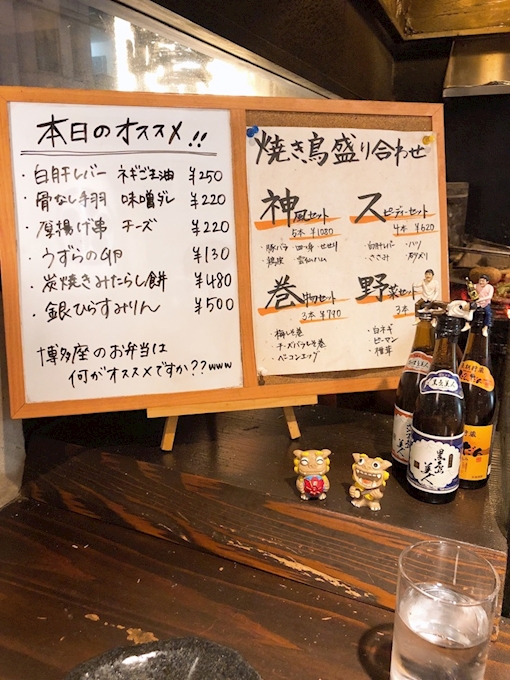 本日のオススメ!!
・白肝レバー ネギごま油 ¥250
・骨なし手羽 味噌ダレ ¥220
・厚揚げ串 チーズ ¥220
・うずらの卵 ¥130
・炭焼きみたらし餅 ¥480
・銀ひらすみりん ¥500
博多座のお弁当は
何がオススメですか??www
焼き鳥盛り合わせ
神風セット
5本 ¥1080
・豚バラ ・四つ身 ・せせり
・鶏皮
スピーディーセット
4本 ¥620
・白肝レバー ・ハツ
・ささみ ・砂ズリ
巻物セット
3本 ¥790
・梅しそ巻
・チーズバラしそ巻
・ベーコンエッグ
野菜セット
3本
・白ネギ
・ピーマン
・椎茸
美人